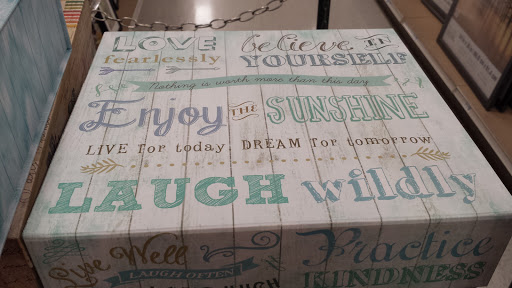 LOVE fearlessly
believe IN YOURSELF
Nothing is worth more than this day
Enjoy THE SUNSHINE
LIVE for today, DREAM for tomorrow
LAUGH wildly
Live Well
LAUGH OFTEN
MUCH
Practice
KINDNESS